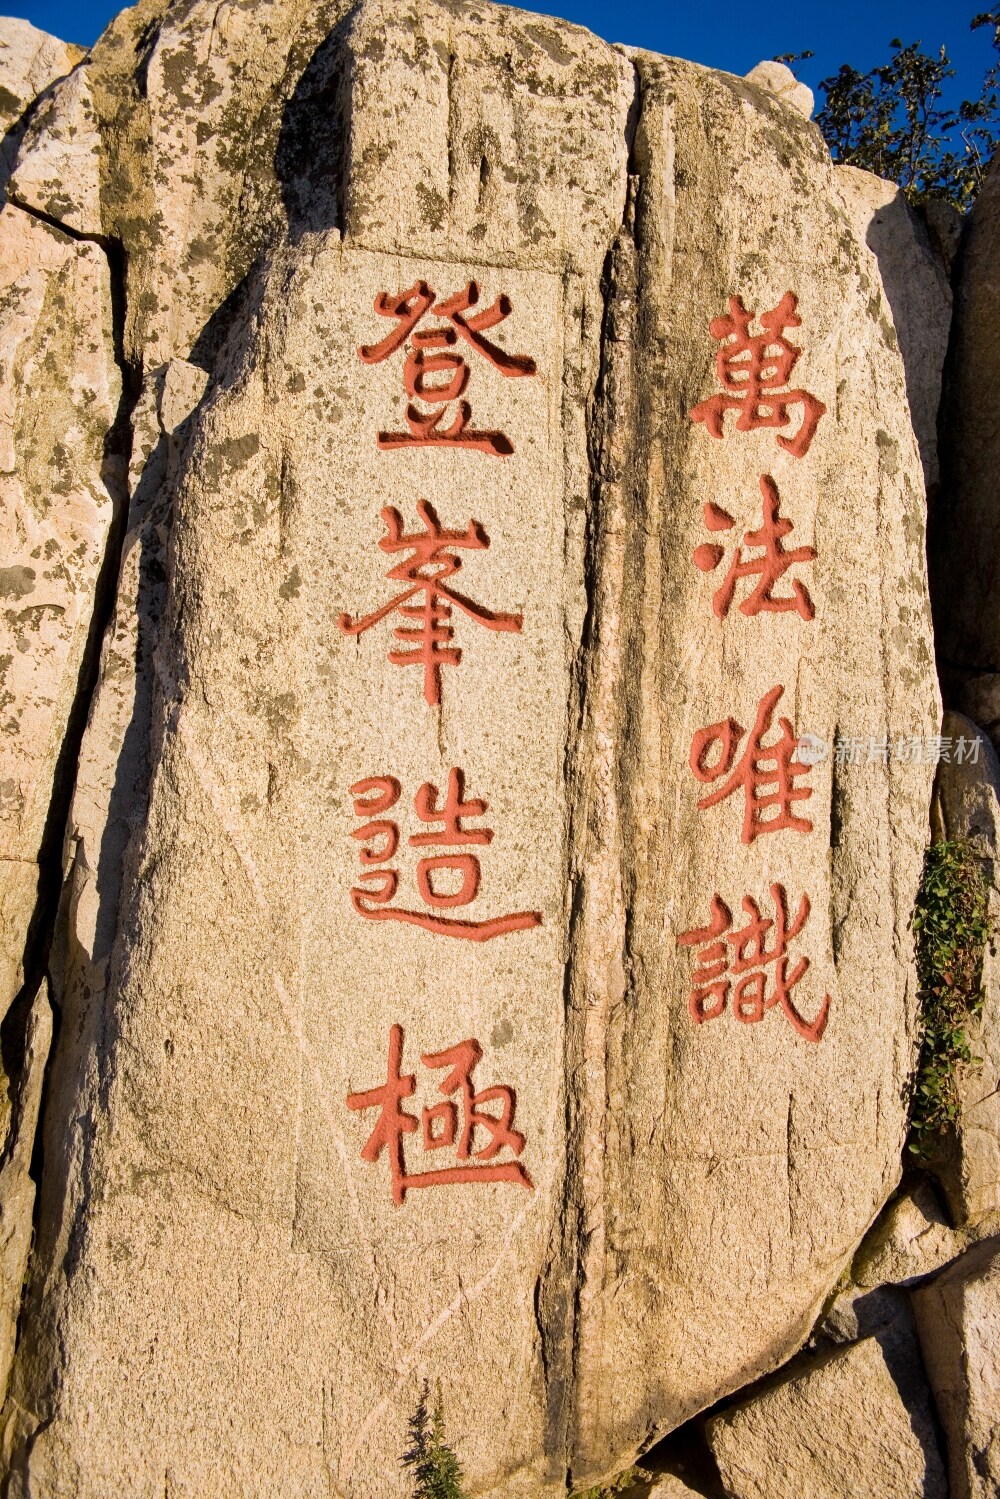 萬法唯識
登峯造極
new 新片场素材